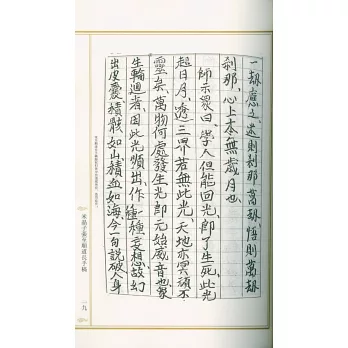 一劫應之迷則刹那萬劫悟則萬劫
刹那、心上本無歲月也
師示衆曰、學人但能回光、即了生死、此光
超日月、透三界若無此光、天地亦冥頑不
靈矣、萬物何處發生光即元始威音也、衆
生輪迴者、因此光順出、作種種妄想故幻
出皮囊積骸如山、積血如海、今一句說破人身
米晶子張至順道長手稿
一九